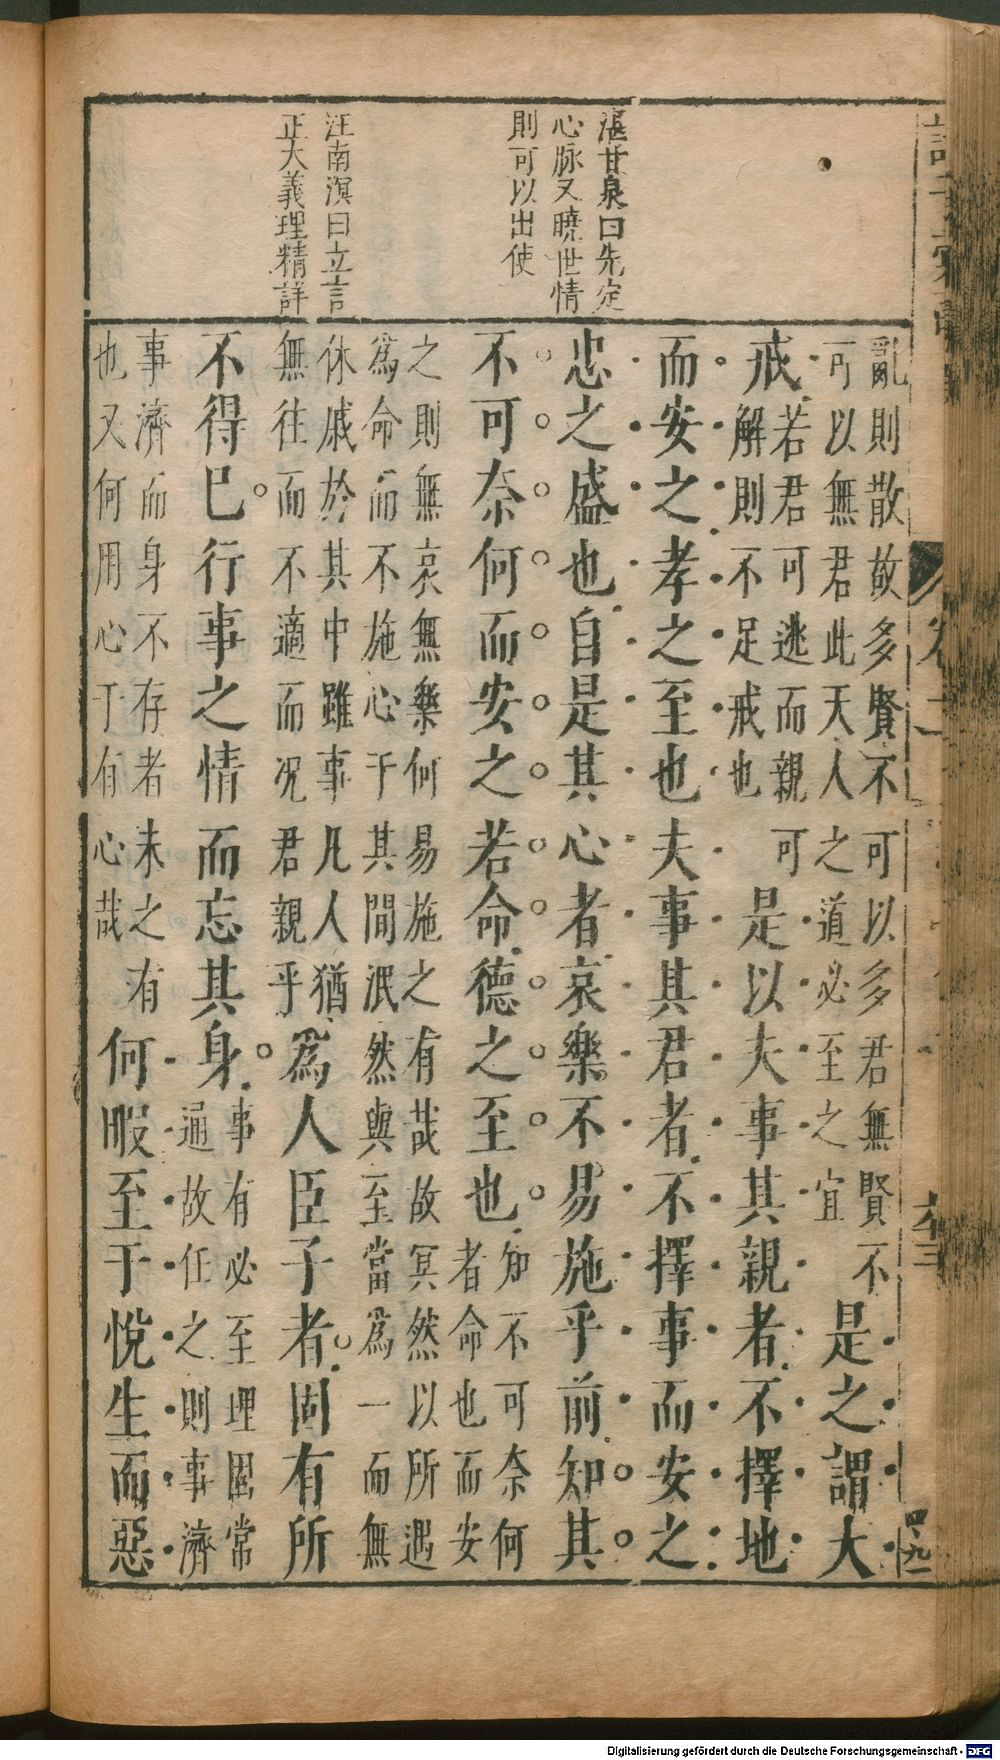 湛甘泉曰先定
心脉又曉世情
則可以出使
汪南溟曰立言
正大義理精詳
亂則散故多賢不可以多君無賢不
可以無君此天人之道必至之宜
是之謂大
戒
若君可逃而親可
解則不足戒也
是以夫事其親者不擇地
而安之孝之至也夫事其君者不擇事而安之
忠之盛也自是其心者哀樂不易施乎前知其
不可奈何而安之若命德之至也
知不可奈何
者命也而安
之則無哀無樂何易施之有哉故冥然以所遇
為命而不施心于其間泯然與至當為一而無
休戚於其中雖事凡人猶
無往而不適而况君親乎
為人臣子者固有所
不得已行事之情而忘其身
事有必至理固常
通故任之則事濟
事濟而身不存者未之有
也又何用心于有心哉
何暇至于悅生而惡
四
Digitalisierung gefördert durch die Deutsche Forschungsgemeinschaft - DFG